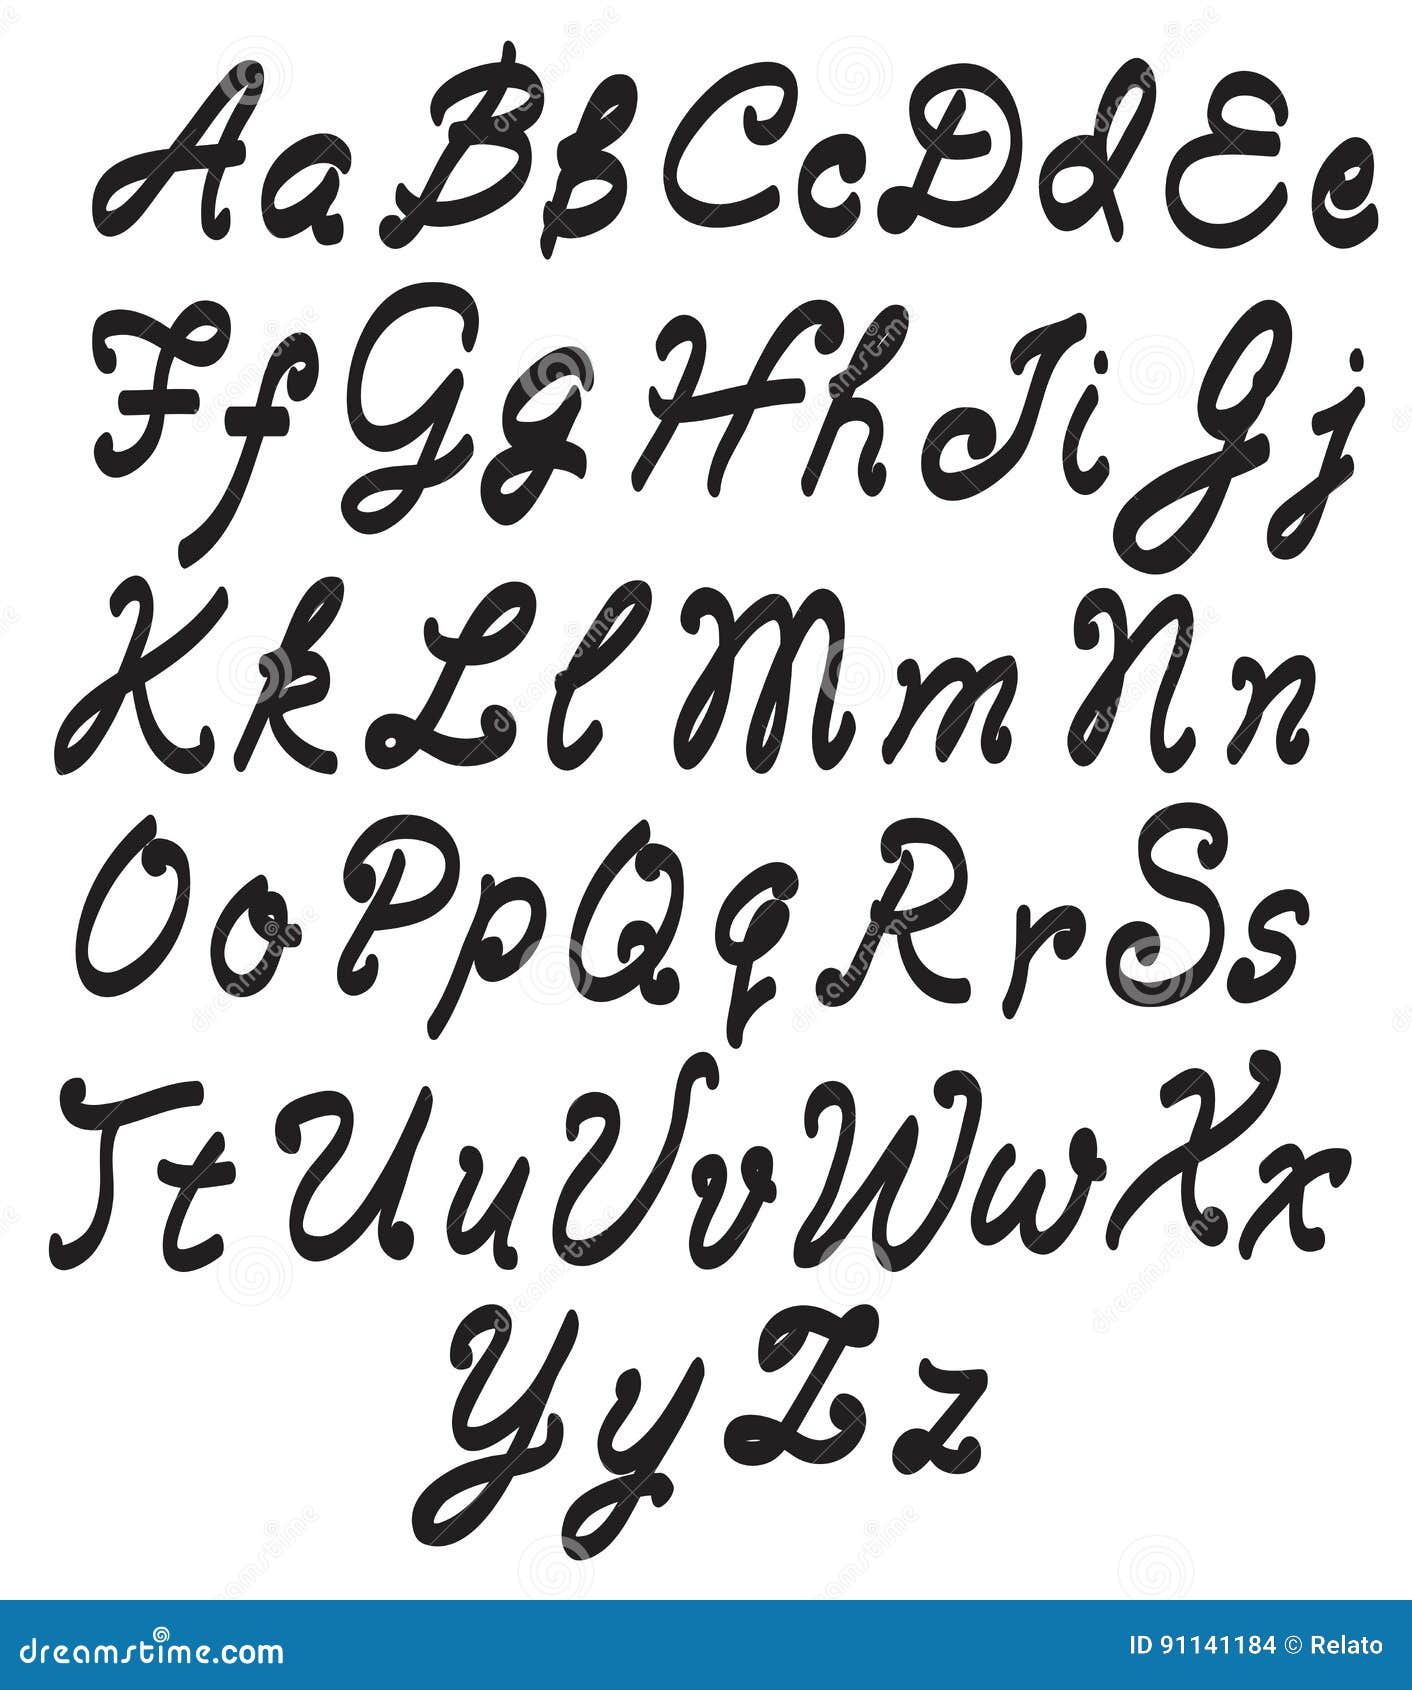 Aa Bb Cc Dd Ee
Ff Gg Hh Ii Jj
Kk Ll Mm Nn
Oo Pp Qq Rr Ss
Tt Uu Vv Ww Xx
Yy Zz
dreamstime.com
ID 91141184 © Relato